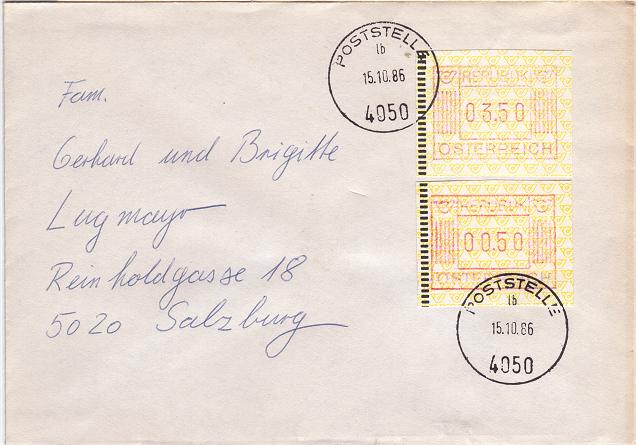 POSTSTELLE
lb
15.10.86
4050
REPUBLIK
03.50
ÖSTERREICH
Fam.
Gerhard und Brigitte
Lugmayr
Reinholdgasse 18
5020 Salzburg
REPUBLIK
00.50
ÖSTERREICH
POSTSTELLE
lb
15.10.86
4050